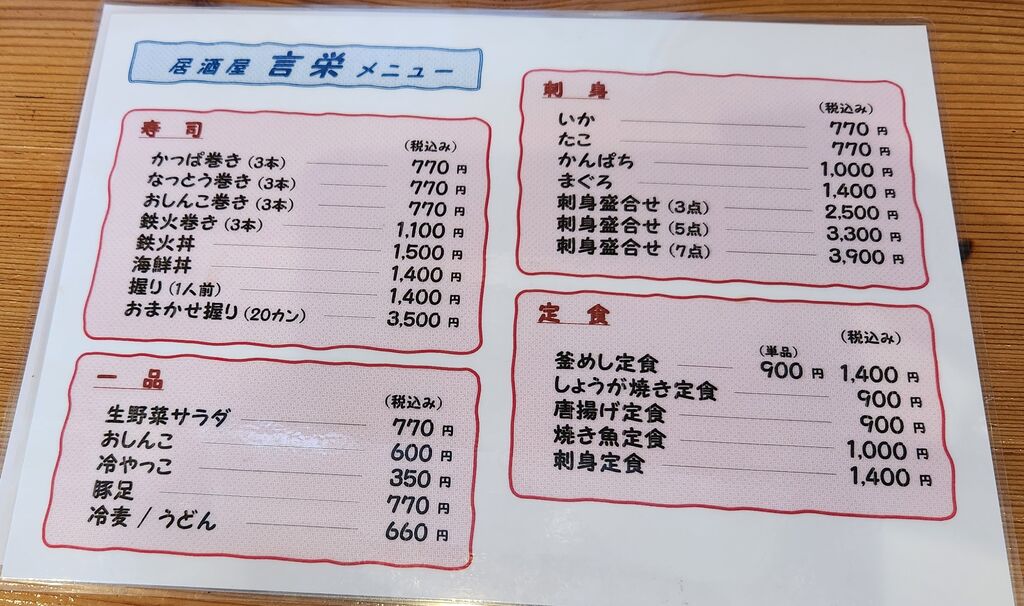 居酒屋 言栄 メニュー
寿 司
(税込み)
かっぱ巻き (3本) 770 円
なっとう巻き (3本) 770 円
おしんこ巻き (3本) 770 円
鉄火巻き (3本) 1,100 円
鉄火丼 1,500 円
海鮮丼 1,400 円
握り (1人前) 1,400 円
おまかせ握り (20カン) 3,500 円
一 品
(税込み)
生野菜サラダ 770 円
おしんこ 600 円
冷やっこ 350 円
豚足 770 円
冷麦 / うどん 660 円
刺 身
(税込み)
いか 770 円
たこ 770 円
かんぱち 1,000 円
まぐろ 1,400 円
刺身盛合せ (3点) 2,500 円
刺身盛合せ (5点) 3,300 円
刺身盛合せ (7点) 3,900 円
定 食
(税込み)
(単品)
釜めし定食 900 円 1,400 円
しょうが焼き定食 900 円
唐揚げ定食 900 円
焼き魚定食 1,000 円
刺身定食 1,400 円